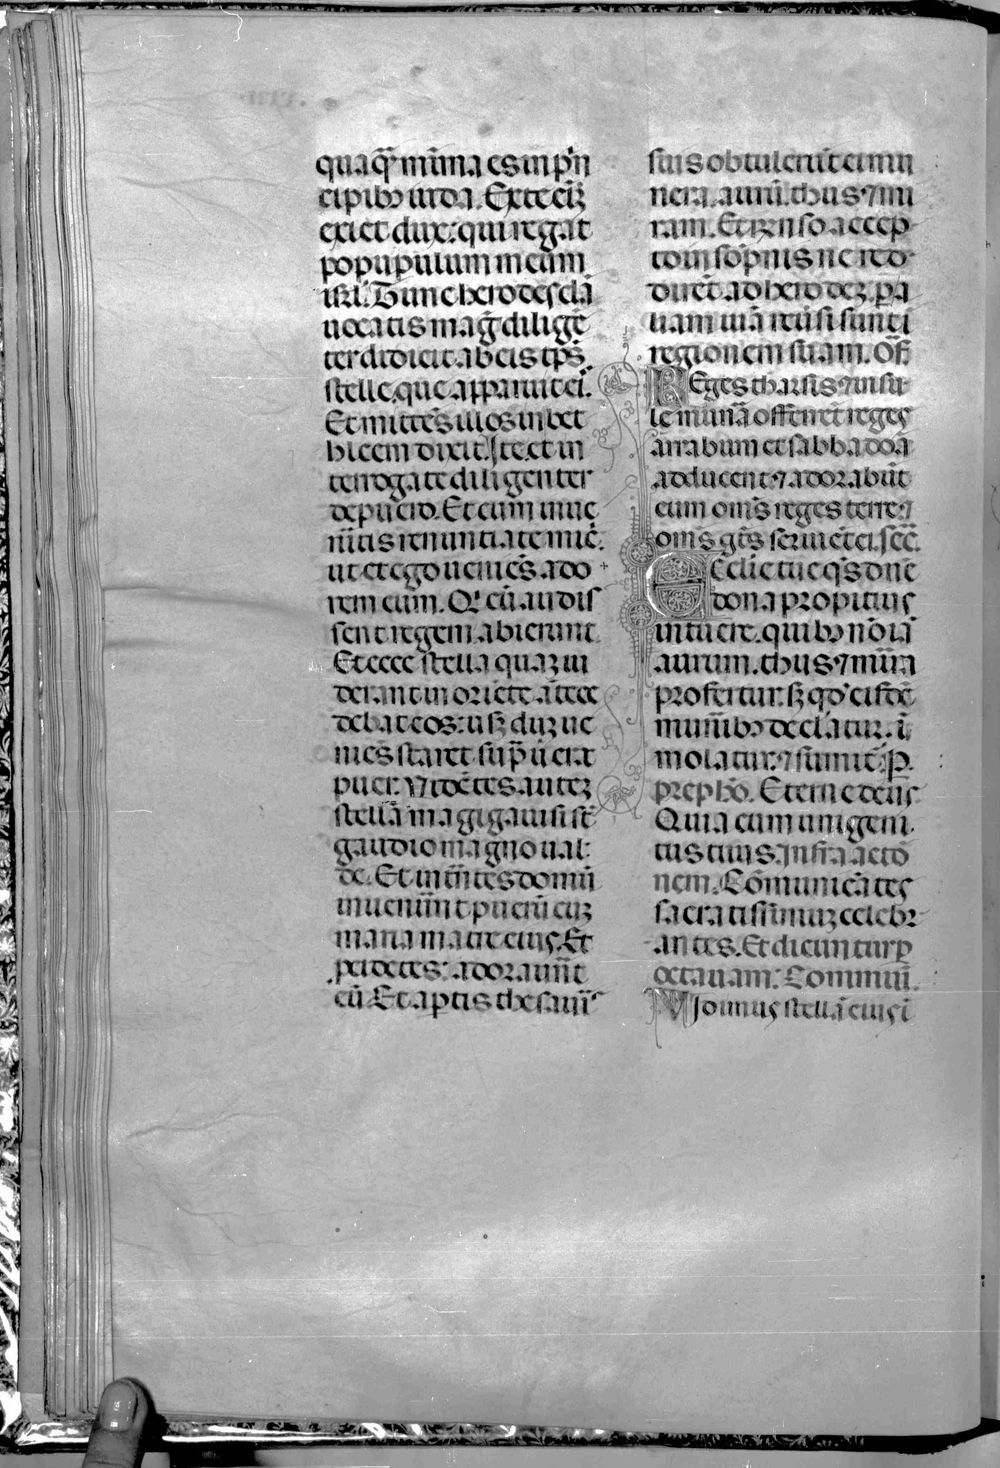 quaq̃ minima es in pͥn
cipibꝫ iuda. Ex te eī
exiet dux: qui regat
popupulum meum
isrl̃. Tunc herodes clā
uocatis magꝭ dilige
ter didicit ab eis tp̃s
stelle, que apparuit eī.
Et mittẽs illos in bet
hleem dixit. Ite et in
terrogate diligenter
de puero. Et cum inue
nĩtis renuntiate mic̃.
ut et ego ueniẽs ado
rem eum. Qͥ cũ audis
sent regem abierunt
Et ecce stella quaꝫ ui
derant in oriẽte ãtece
debat eos: usqꝫ duꝫ ue
niẽs staret sup̃ u erat
puer. Vidẽtes auteꝫ
stellã magi gauisi st̃
gaudio magno ual
de. Et intrãtes domũ
inuenerũt pueruꝫ cuꝫ
maria matre eius, Et
pcidẽtes: adorauerũt
eũ. Et aptis thesauris
suis obtulerũt ei mu
nera. aurũ. thus ⁊ mi
ram. Et respõso accep
to in sõpnis ne redi
dirẽt ad herodeꝫ. p̲ a
liam uiã reũsi sunt ĩ
regionem suam. Off̃
Reges tharsis ⁊ insu
le munã offerent reges
arrabum et sabba doã
adducent. ⁊ adorabũt
eum om̃s reges terre ⁊
om̃s gẽs seruiẽt ei. sec̃.
Ecclie tue qs̃ dñe
dona propitius
intuere. quibꝫ nõ iã
aurum. thus ⁊ mirra
profertur. sꝫ qd̃ eisdẽ
munibꝫ declaratur. ĩ
molatur. ⁊ sumit̃. P̲.
prephõ. Eterne deus
Quia cum unigeni
tus tuus. Infra actõ
nem. Cõmunicãtes
sacratissimuꝫ celebr
antes. Et dicuntur p̲
octauam: Commun̄.
Vidimus stellã eius ĩ